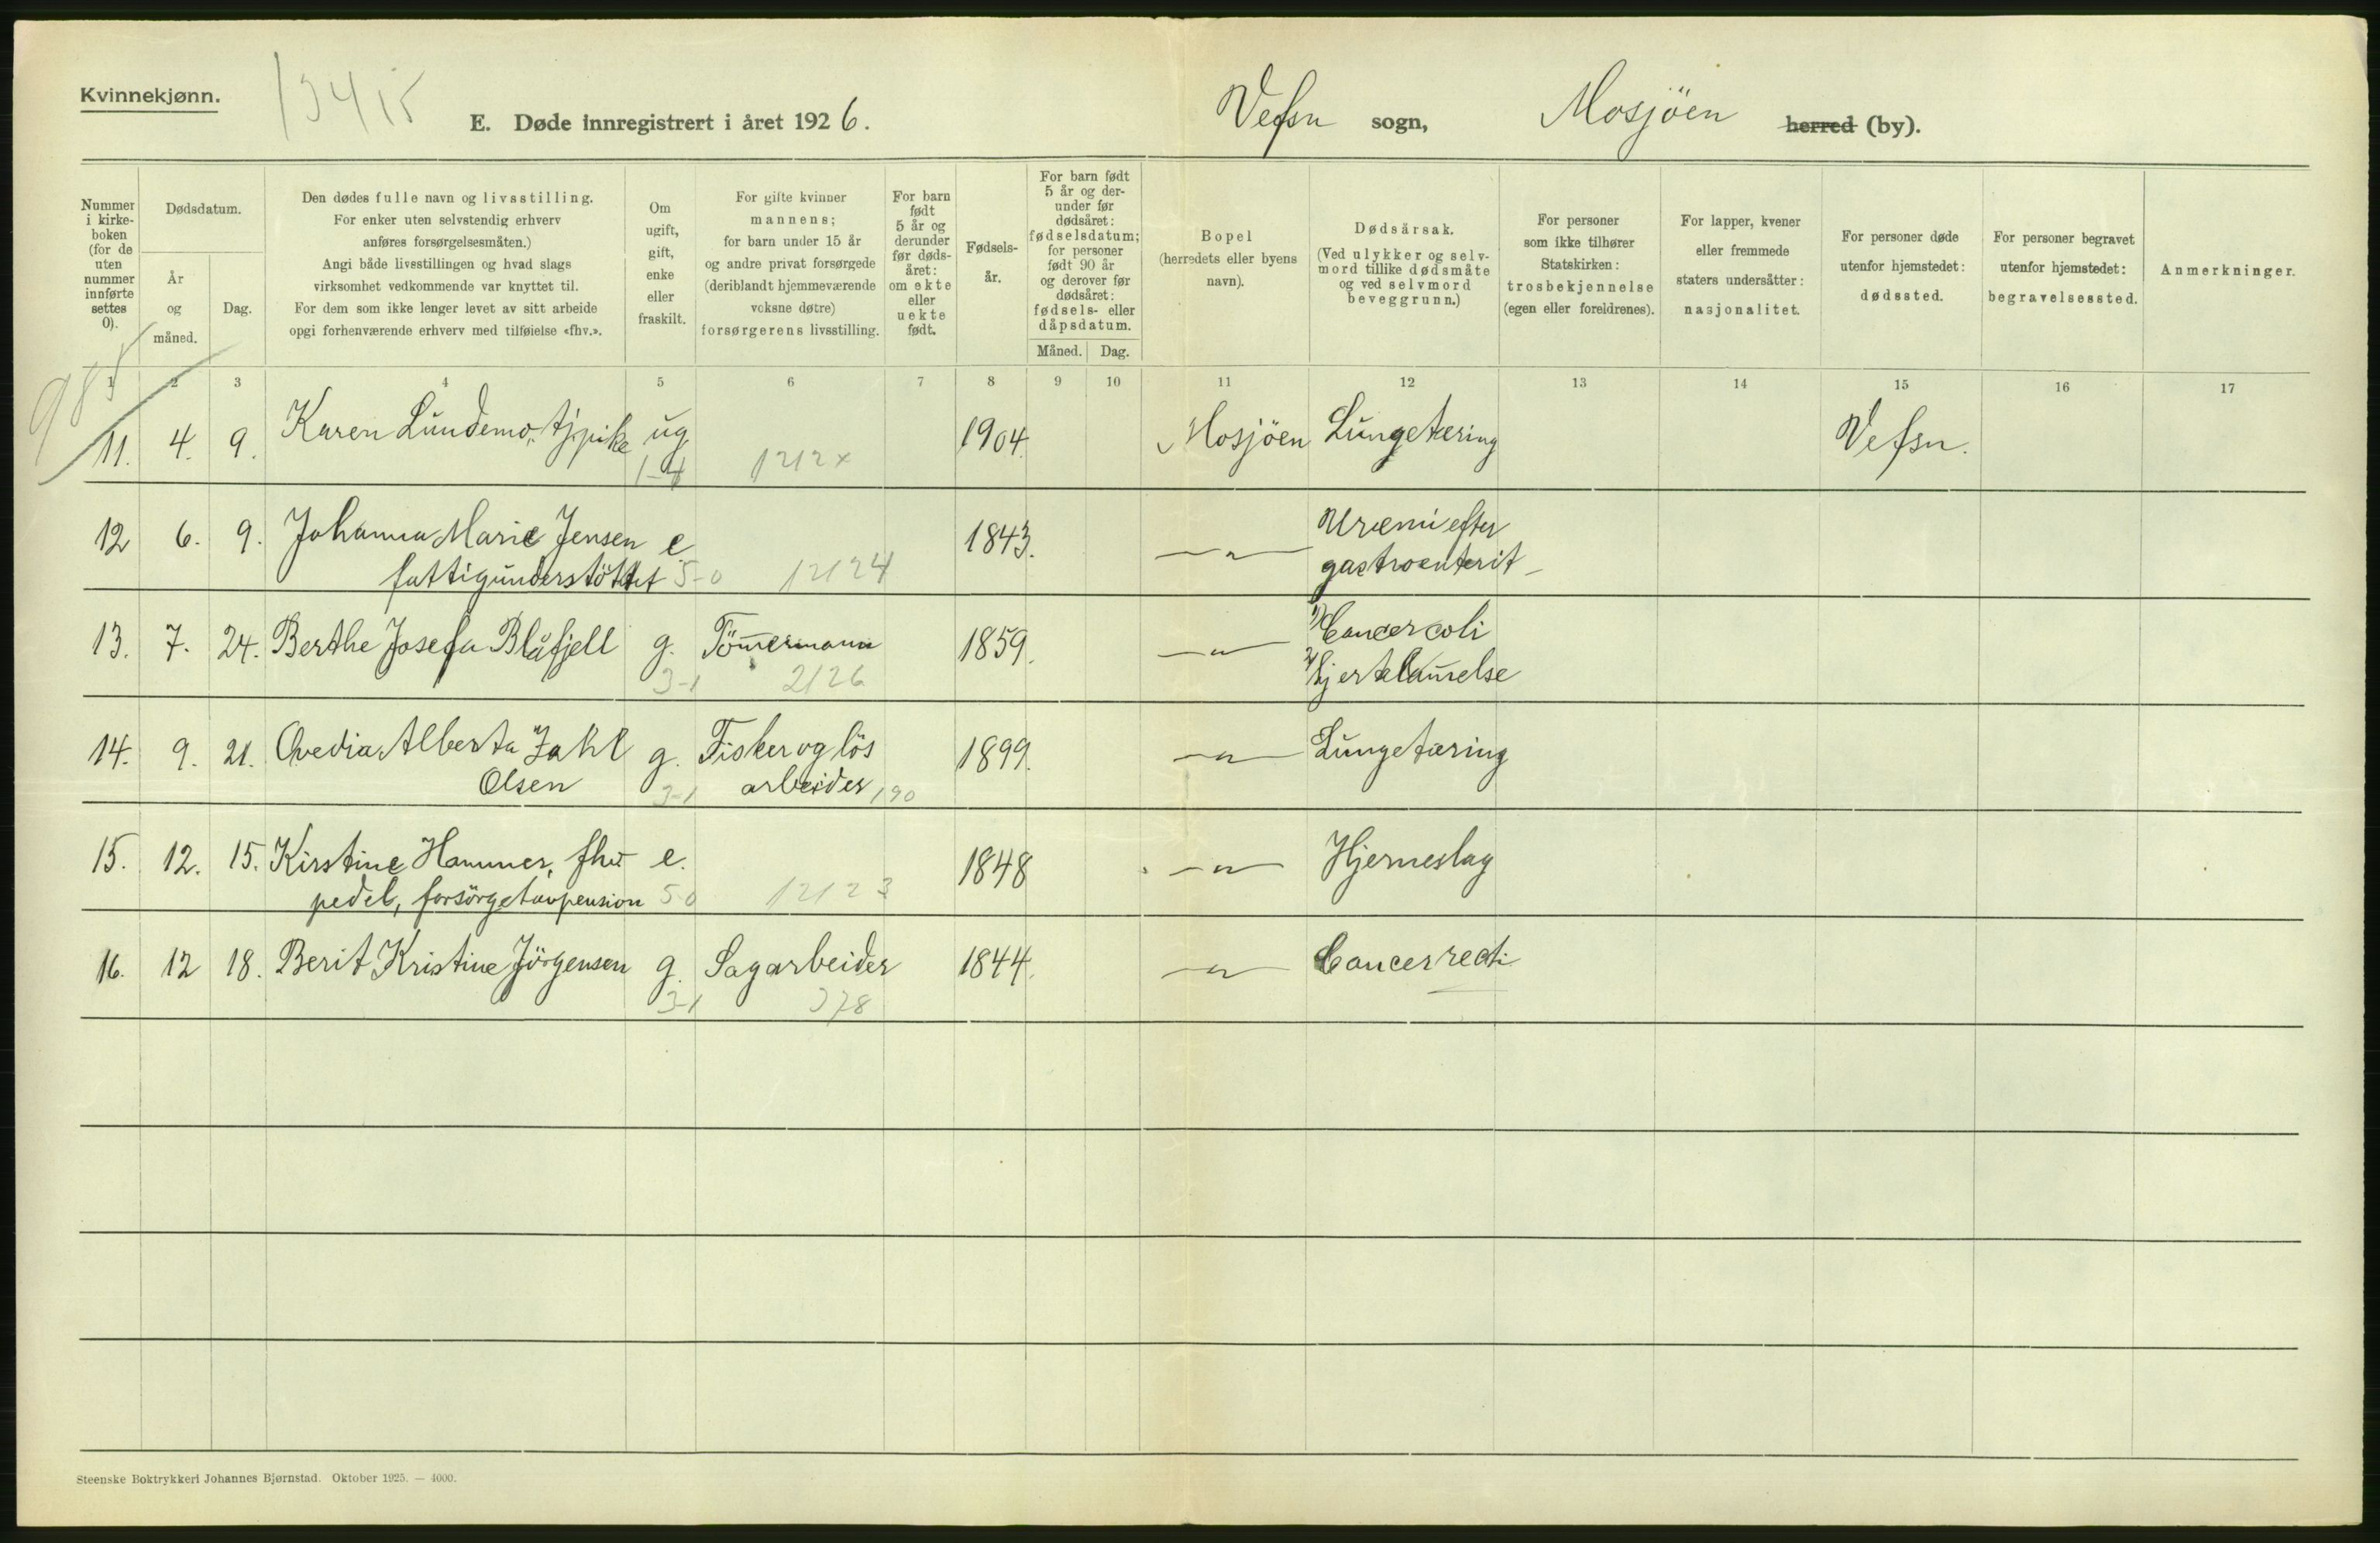 Kvinnekjønn.
E. Døde innregistrert i året 1926.
Vefsn sogn, Mosjöen herred (by).
Nummer i kirkeboken (for de uten nummer innførte settes 0).
Dødsdatum.
År og måned.
Dag.
Den dødes fulle navn og livsstilling.
For enker uten selvstendig erhverv
anføres forsørgelsesmåten.)
Angi både livsstillingen og hvad slags
virksomhet vedkommende var knyttet til.
For dem som ikke lenger levet av sitt arbeide
opgi forhenværende erhverv med tilføielse «fhv.».
Om ugift, gift, enke eller fraskilt.
For gifte kvinner
mannens;
for barn under 15 år
og andre privat forsørgede
(deriblandt hjemmeværende
voksne døtre)
forsørgerens livsstilling.
For barn født 5 år og derunder før dødsåret: om ekte eller uekte født.
Fødselsår.
For barn født 5 år og derunder før dødsåret: fødselsdatum; for personer født 90 år og derover før dødsåret: fødsels- eller dåpsdatum.
Måned. Dag.
Bopel
(herredets eller byens
navn).
Dødsårsak.
(Ved ulykker og selv-
mord tillike dødsmåte
og ved selvmord
beveggrunn.)
For personer
som ikke tilhører
Statskirken:
trosbekjennelse
(egen eller foreldrenes).
For lapper, kvener
eller fremmede
staters undersåtter:
nasjonalitet.
For personer døde
utenfor hjemstedet:
dødssted.
For personer begravet
utenfor hjemstedet:
begravelsessted.
Anmerkninger.
1 2 3 4 5 6 7 8 9 10 11 12 13 14 15 16 17
11. 4. 9. Karen Lundemo, tj.pike ug 1904. Mosjöen Lungetæring Vefsn.
1-4 1212x
12 6. 9. Johanna Marie Jensen e 1843. -"- Uræmi efter
fattigunderstöttet 5-0 12124 gastroenterit
13. 7. 24. Berthe Josefa Blåfjell g. Töm̅ermann 1859. -"- 1) Cancer coli
3-1 2126 2) Hjertelam̅else
14. 9. 21. Ovedia Alberta Zahl g. Fisker og lös 1899. -"- Lungetæring
Olsen 3-1 arbeider 190
15. 12. 15. Kirstine Hammer, fhv e. 1848 -"- Hjerneslag
pedel, forsörget av pension 5-0 12123
16. 12 18. Berit Kristine Jörgensen g. Sagarbeider 1844. -"- Cancer recti
3-1 378
Steenske Boktrykkeri Johannes Bjørnstad. Oktober 1925. — 4000.